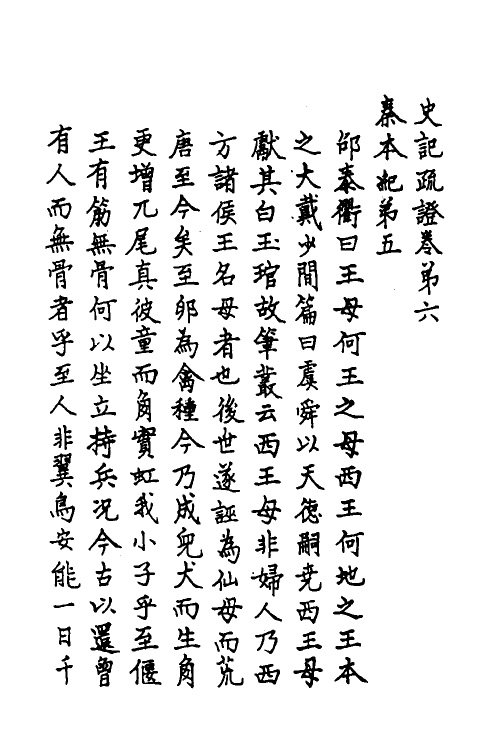 史記疏證卷第六
秦本紀第五
邵泰衢曰王母何王之母西王何地之王本
之大戴少閒篇曰虞舜以天德嗣堯西王母
獻其白玉琯故筆叢云西王母非婦人乃西
方諸侯王名母者也後世遂誣為仙母而荒
唐至今矣至卵為禽種今乃成兒犬而生角
更增兀尾真彼童而角實虹我小子乎至偃
王有筋無骨何以坐立持兵况今古以還曾
有人而無骨者乎至人非翼鳥安能一日千